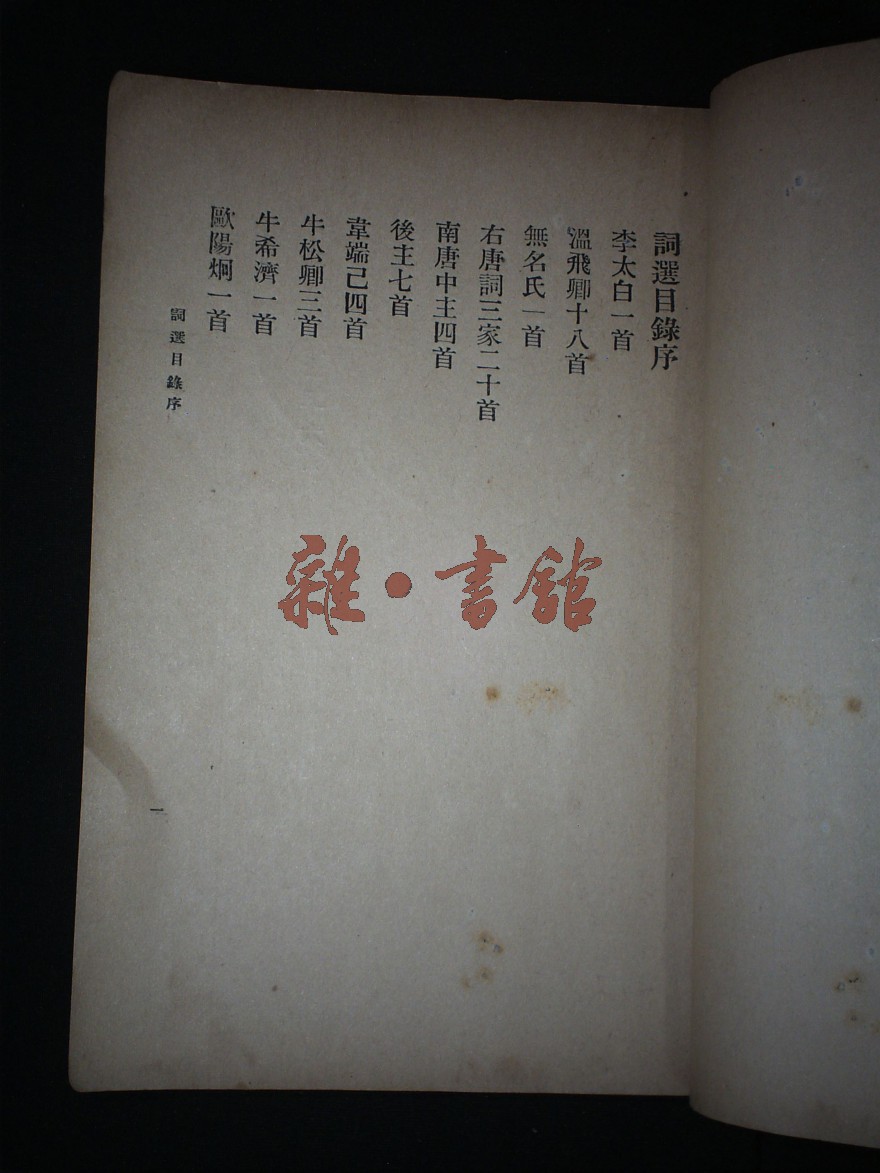 詞選目錄序
李太白一首
溫飛卿十八首
無名氏一首
右唐詞三家二十首
南唐中主四首
後主七首
韋端己四首
牛松卿三首
牛希濟一首
歐陽炯一首
詞選目錄序
一
雜·書館